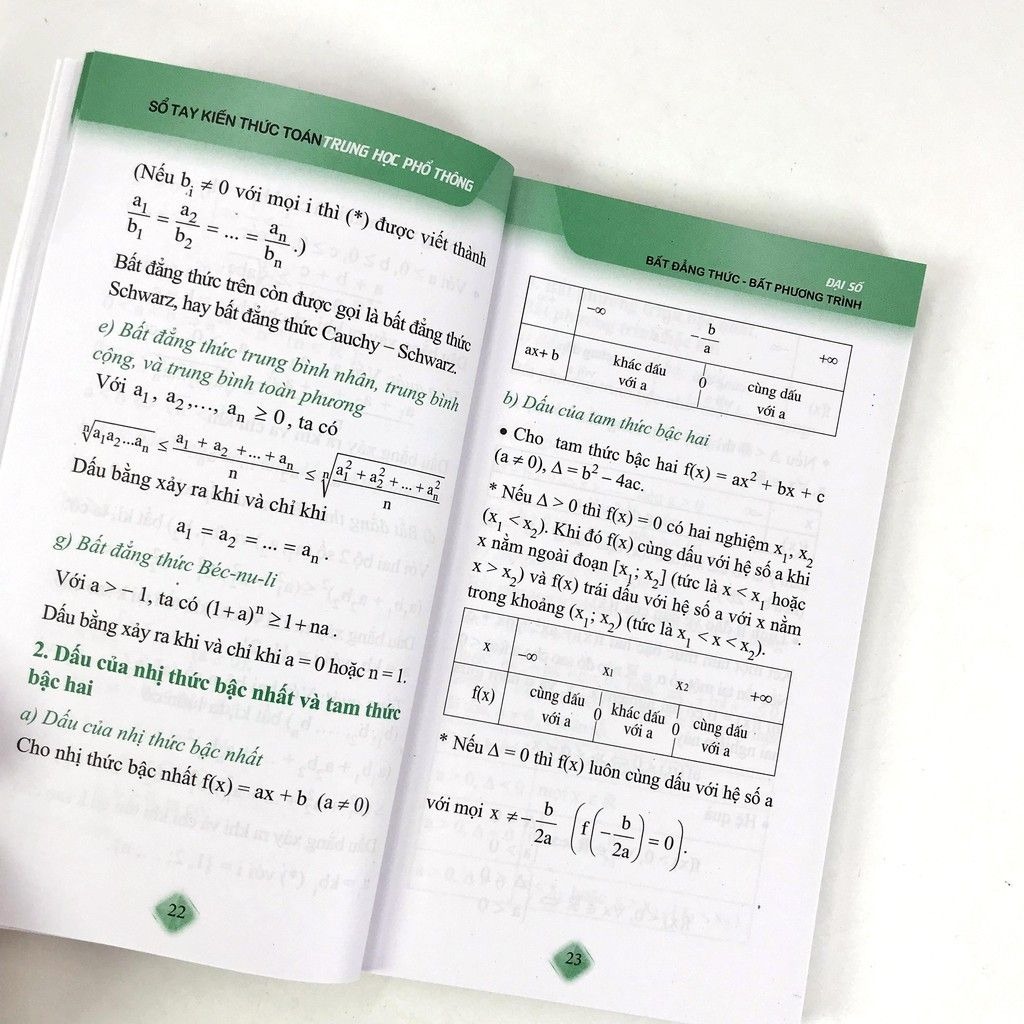 SỔ TAY KIẾN THỨC TOÁN TRUNG HỌC PHỔ THÔNG
(Nếu bᵢ ≠ 0 với mọi i thì (*) được viết thành
a₁/b₁ = a₂/b₂ = ... = aₙ/bₙ .)
Bất đẳng thức trên còn được gọi là bất đẳng thức
Schwarz, hay bất đẳng thức Cauchy – Schwarz.
e) Bất đẳng thức trung bình nhân, trung bình
cộng, và trung bình toàn phương
Với a₁, a₂,..., aₙ ≥ 0, ta có
ⁿ√(a₁a₂...aₙ) ≤ (a₁ + a₂ + ... + aₙ)/n ≤ ⁿ√((a₁² + a₂² + ... + aₙ²)/n)
Dấu bằng xảy ra khi và chỉ khi
a₁ = a₂ = ... = aₙ.
g) Bất đẳng thức Béc-nu-li
Với a > – 1, ta có (1+a)ⁿ ≥ 1+na.
Dấu bằng xảy ra khi và chỉ khi a = 0 hoặc n = 1.
2. Dấu của nhị thức bậc nhất và tam thức
bậc hai
a) Dấu của nhị thức bậc nhất
Cho nhị thức bậc nhất f(x) = ax + b (a ≠ 0)
22
ĐẠI SỐ
BẤT ĐẲNG THỨC - BẤT PHƯƠNG TRÌNH
–∞ –b/a +∞
ax+ b khác dấu 0 cùng dấu
với a với a
b) Dấu của tam thức bậc hai
• Cho tam thức bậc hai f(x) = ax² + bx + c
(a ≠ 0), Δ = b² – 4ac.
* Nếu Δ > 0 thì f(x) = 0 có hai nghiệm x₁, x₂
(x₁ < x₂). Khi đó f(x) cùng dấu với hệ số a khi
x nằm ngoài đoạn [x₁; x₂] (tức là x < x₁ hoặc
x > x₂) và f(x) trái dấu với hệ số a với x nằm
trong khoảng (x₁; x₂) (tức là x₁ < x < x₂).
x –∞ x₁ x₂ +∞
f(x) cùng dấu 0 khác dấu 0 cùng dấu
với a với a với a
* Nếu Δ = 0 thì f(x) luôn cùng dấu với hệ số a
với mọi x ≠ –b/2a (f(–b/2a) = 0).
23